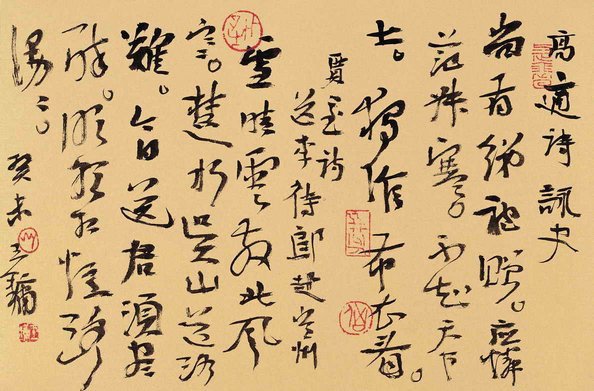 高適詩詠史
尚有绨袍贈。應憐
范叔寒。不知天下
士。猶作布衣看。
賈至詩
送李侍郎赴常州
雪晴雲散北風
寒。楚水吳山道路
難。今日送君須盡
醉。明朝相憶路
漫々。
癸未王鏞